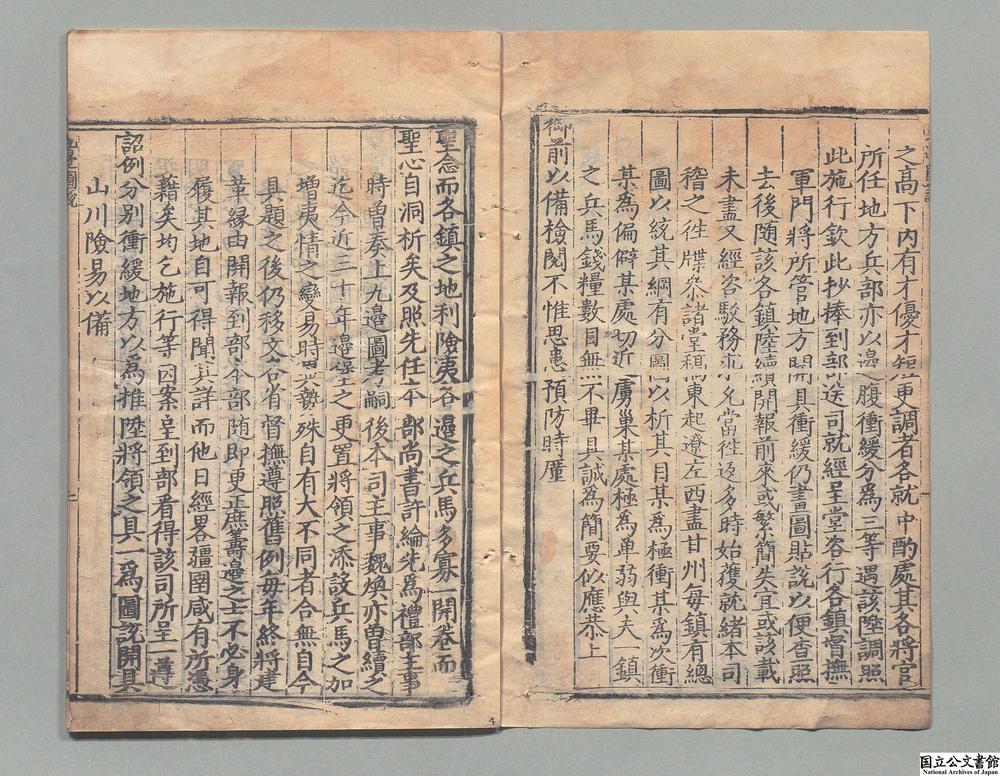 之高下內有才優才短更調者各就中酌處其各將官
所任地方兵部亦以邊腹衝緩分為三等遇該陞調照
此施行欽此抄捧到部送司就經呈堂咨行各鎮督撫
軍門將所管地方開具衝緩仍畫圖貼說以便查照
去後隨該各鎮陸續開報前來或繁簡失宜或該載
未盡又經咨駁務求允當往返多時始獲就緒本司
稽之往牒叅諸堂稿東起遼左西盡甘州每鎮有總
圖以統其綱有分圖以析其目某為極衝某為次衝
某為偏僻某處切近虜巢某處極為單弱與夫一鎮
之兵馬錢糧數目無不畢具誠為簡要似應恭上
御前以備檢閱不惟思患預防時厪
聖念而各鎮之地利險夷各邊之兵馬多寡一開卷而
聖心自洞析矣及照先任本部尚書許論先為禮部主事
時曾奏上九邊圖考嗣後本司主事魏煥亦曾續之
迄今近三十年邊堡之更置將領之添設兵馬之加
增夷情之變易時異勢殊自有大不同者合無自今
具題之後仍移文各省督撫遵照舊例每年終將建
革緣由開報到部本部隨即更正庶籌邊之士不必身
履其地自可得聞其詳而他日經畧疆圉咸有所憑
藉矣均乞施行等因案呈到部看得該司所呈一遵
詔例分別衝緩地方以為推陞將領之具一為圖說開具
山川險易以備
4
国立公文書館
National Archives of Japan